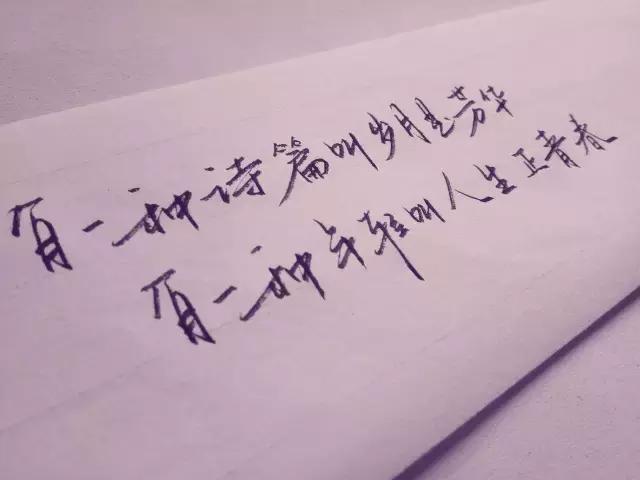 有一种诗篇叫岁月是芳华
有一种年轻叫人生正青春